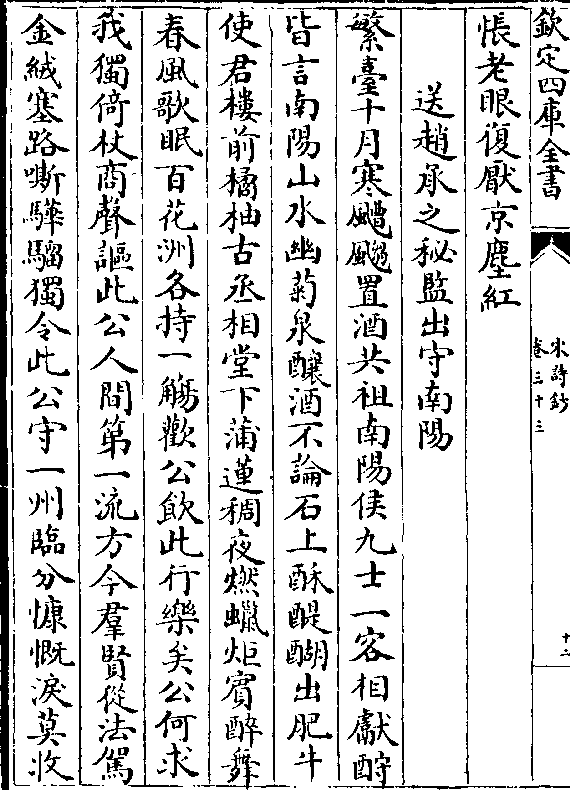 欽定四庫全書
宋詩鈔
卷三十三
十二
悵老眼復厭京塵紅
送趙承之秘監出守南陽
繁臺十月寒颼飀置酒共祖南陽侯九士一客相獻酧
皆言南陽山水幽菊泉釀酒不論石上酥醍醐出肥牛
使君樓前橘柚古丞相堂下蒲蓮稠夜燃蠟炬賓醉舞
春風歌眠百花洲各持一觴歡公飲此行樂矣公何求
我獨倚杖商聲謳此公人間第一流方今羣賢從法駕
金絨塞路嘶驊騮獨令此公守一州臨分慷慨淚莫收